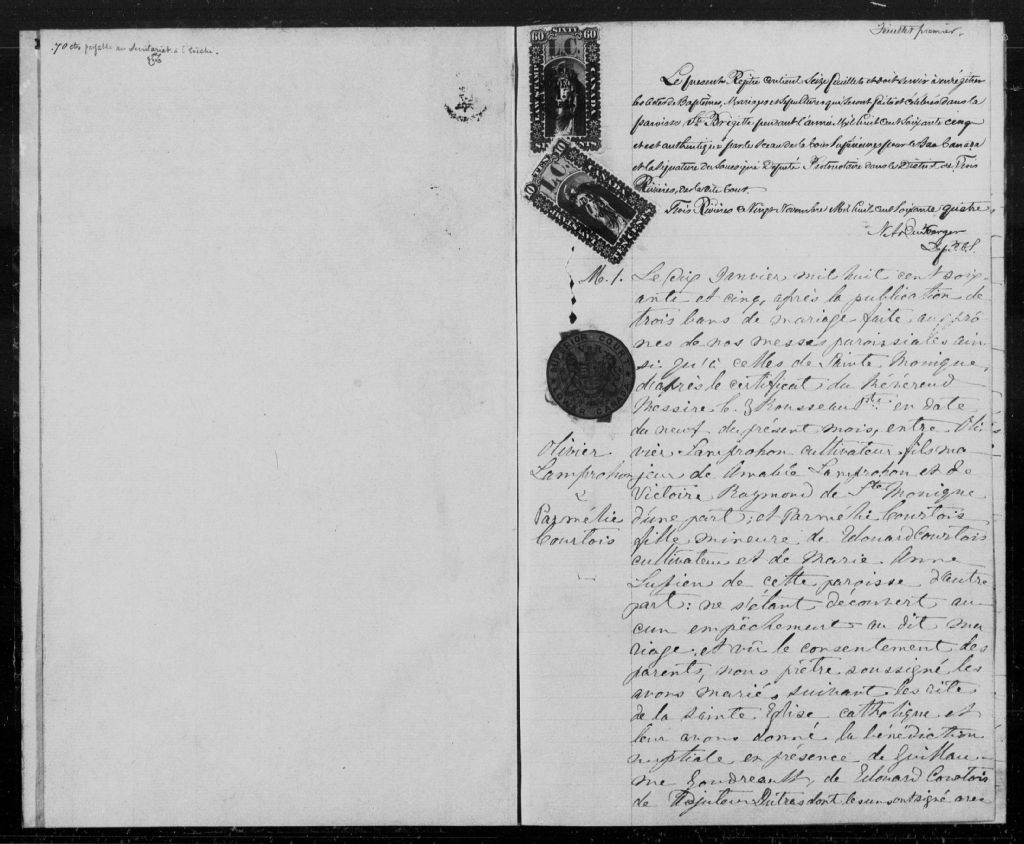 70 cts payable au Secrétariat à l'Evêché.
Feuillet premier.
SIXTY
60 60
L.C.
Le present Régitre contient Seize feuillets et doit servir à enrégitrer
les actes de Baptêmes, Mariages et sepultures qui seront faits et célébrés dans la
paroisse Ste Brigitte pendant l'année Mil huit cent soixante cinq
et est authentiqué par le sceau de la Cour Supérieure pour le Bas Canada
et la signature du soussigné Député Protonotaire dans le District de Trois
Rivières, de la dite Cour.
Trois Rivières ce Vingt Novembre Mil huit cent soixante quatre
Dep. P.C.S.
SIXTY
60
L.C.
M. 1.
Le dix Janvier mil huit cent soix-
ante et cinq, après la publication de
trois bans de mariage faite aux prô-
nes de nos messes paroissiales ain-
si qu'à celles de Sainte Monique,
d'après le certificat du Révérend
Messire C. Z Rousseau Ptre en date
du neuf du présent mois, entre Oli-
vier Lamprohon cultivateur fils ma-
jeur de Amable Lamprohon et de
Victoire Raymond de Ste Monique
d'une part; et Parmélie Courtois
fille mineure de Edouard Courtois
cultivateur et de Marie Anne
Lupien de cette paroisse d'autre
part: ne s'étant découvert au-
cun empêchement au dit ma-
riage; et vû le consentement des
parents, nous prêtre soussigné les
avons mariés suivant les rite
de la Sainte Eglise catholique et
leur avons donné la bénédiction
nuptiale en présence de Guillau-
me Goudreault, de Edouard Courtois
de Adjuteur Dutres dont les uns ont signé avec
SUPERIOR COURT
LOWER CANADA
Olivier
Lamprohon
&
Parmélie
Courtois